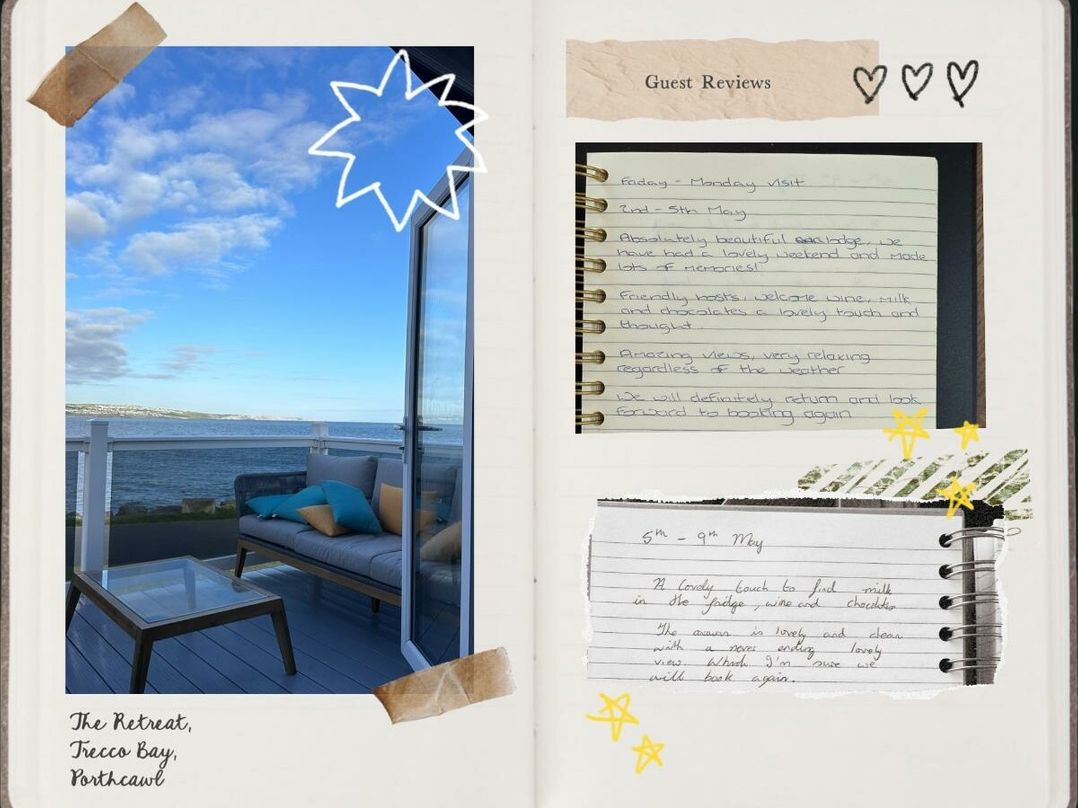 The Retreat,
Trecco Bay,
Porthcawl
Guest Reviews
Friday - Monday visit
2nd - 5th May
Absolutely beautiful lodge, we
have had a lovely weekend and made
lots of memories!
Friendly hosts, welcome wine, milk
and chocolates a lovely touch and
thought.
Amazing views, very relaxing
regardless of the weather
We will definitely return and look
forward to booking again
5th - 9th May
A lovely touch to find milk
in the fridge, wine and chocolates
The caravan is lovely and clean
with a never ending lovely
view. Which I'm sure we
will book again.